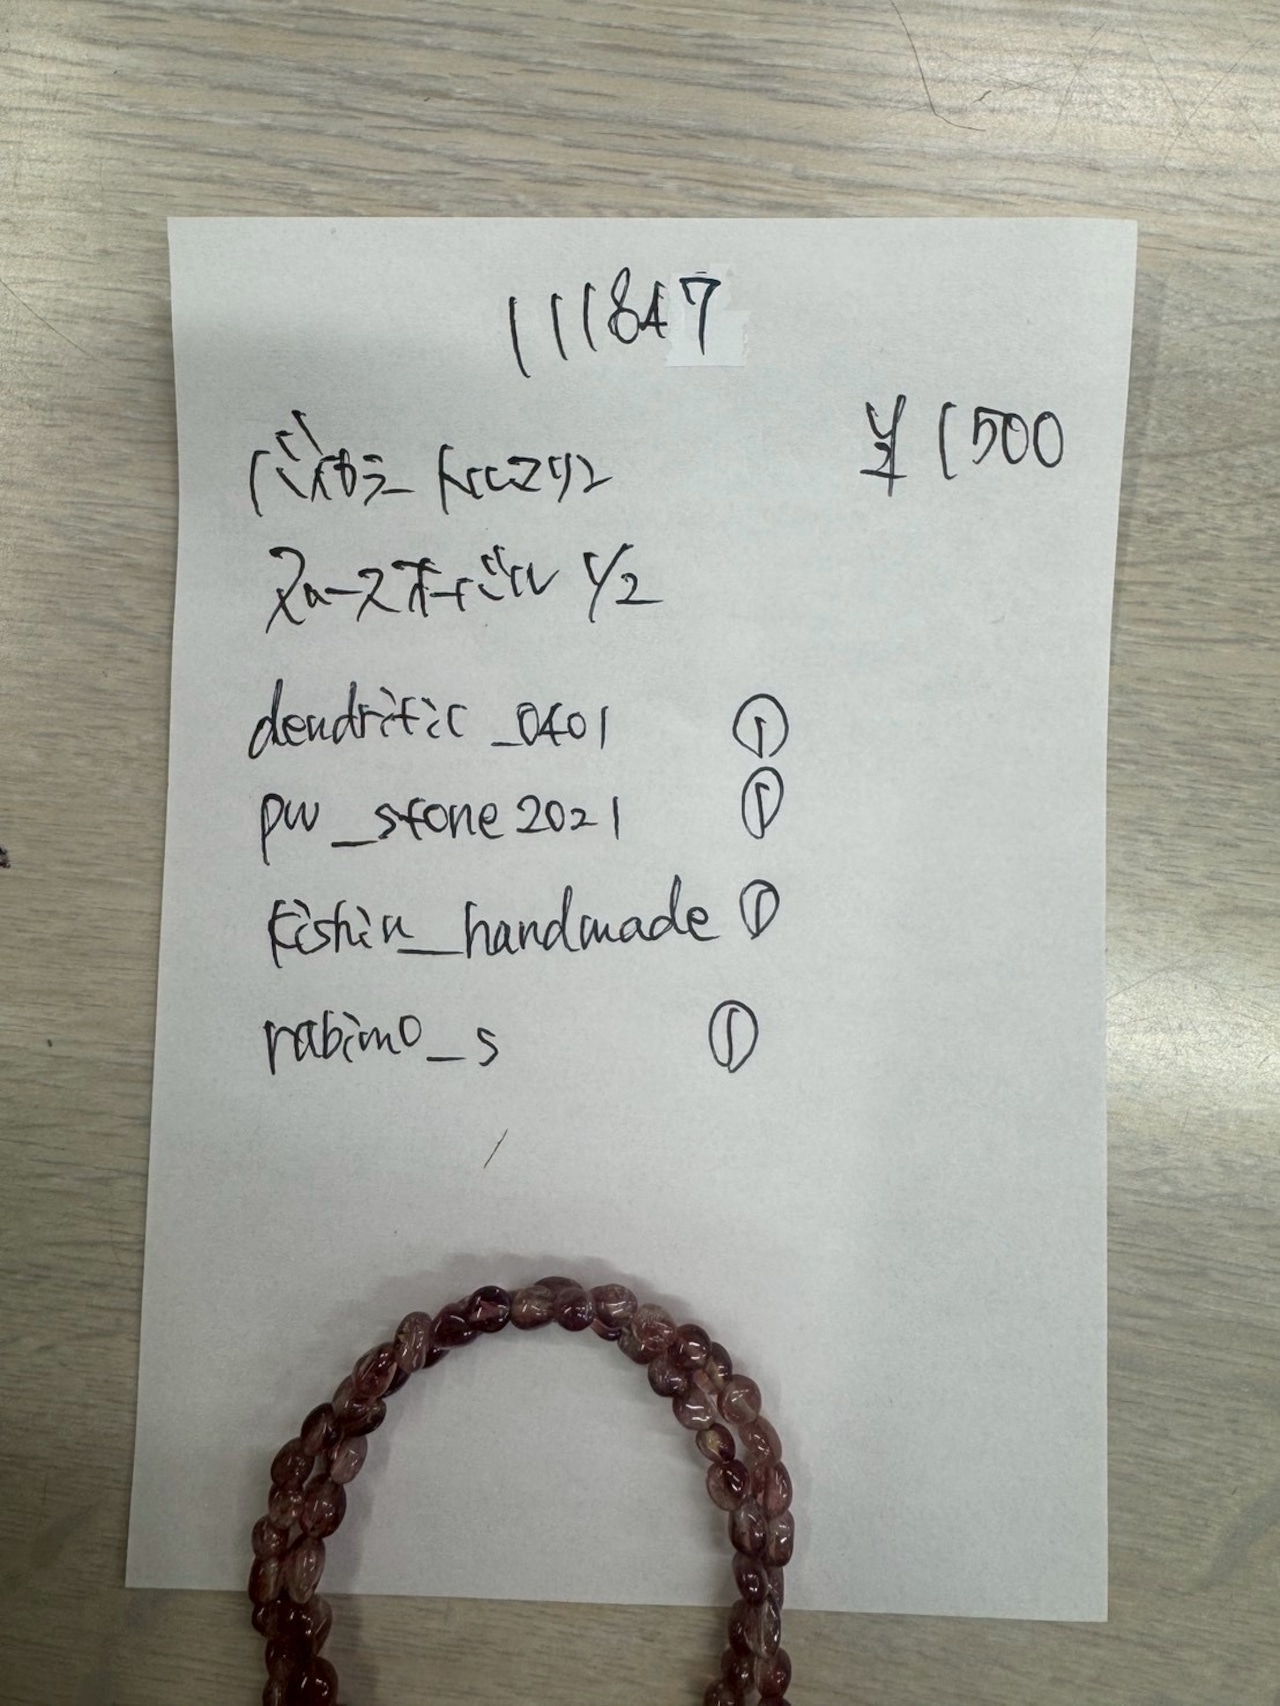 111847
バイカラートルマリン
¥1500
スムースオーバル 1/2
dendritic_0401 ①
pw_stone2021 ①
kishin_handmade ①
rabimo_s ①